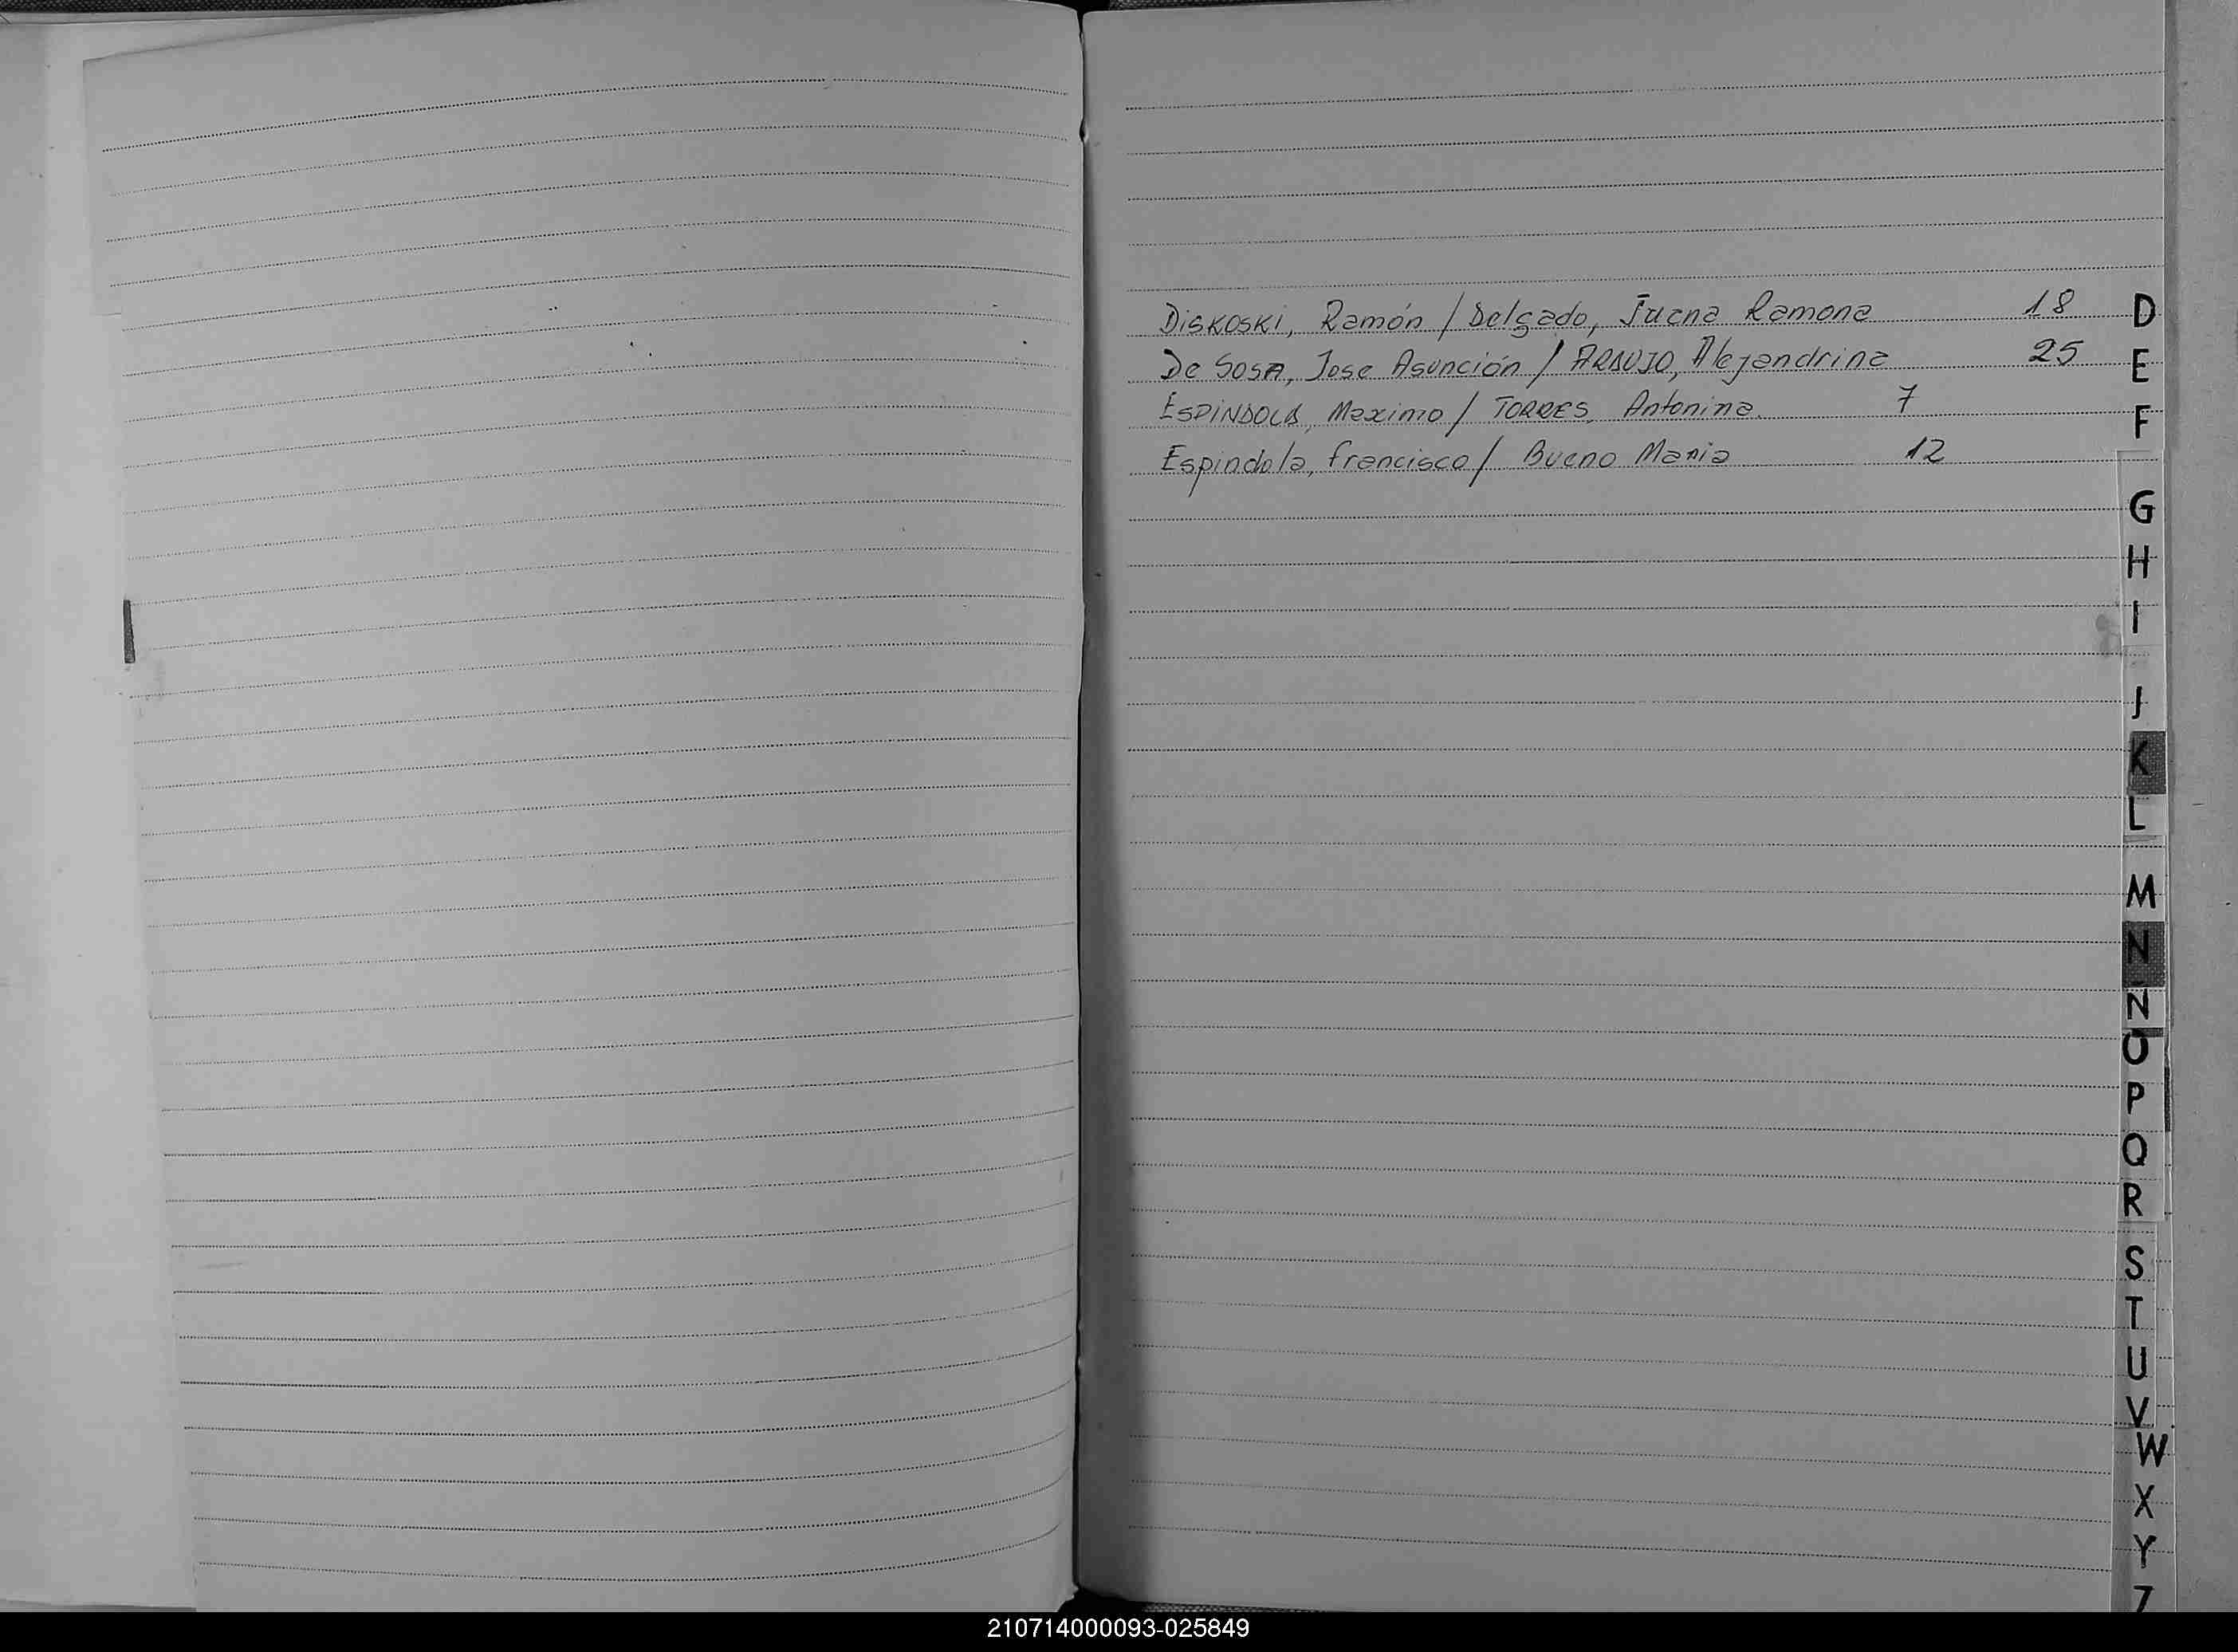 Diskoski, Ramón / Delgado, Juana Ramona 18
De Sosa, Jose Asunción / ARAUJO, Alejandrina 25
ESPINDOLA, Maximo / TORRES, Antonina. 7
Espindola, francisco / Bueno Maria 12
D
E
F
G
H
I
J
K
L
M
N
N
O
P
Q
R
S
T
U
V
W
X
Y
Z
210714000093-025849